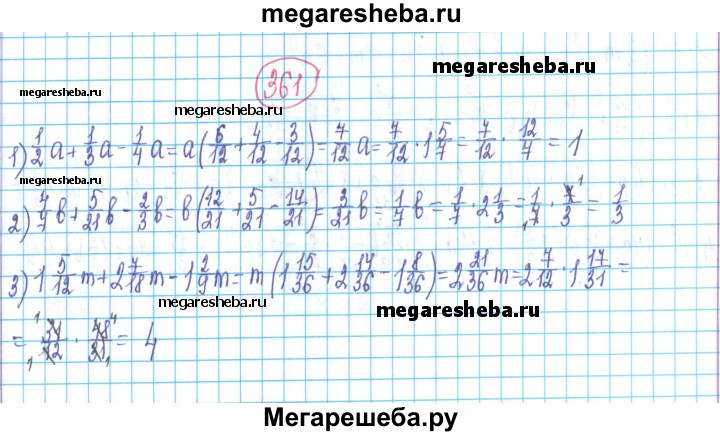 megaresheba.ru
megaresheba.ru
361
megaresheba.ru
1) 1/2 a + 1/3 a - 1/4 a = a (6/12 + 4/12 - 3/12) = 7/12 a = 7/12 · 1 5/7 = 7/12 · 12/7 = 1
megaresheba.ru
2) 4/7 в + 5/21 в - 2/3 в = в (12/21 + 5/21 - 14/21) = 3/21 в = 1/7 в = 1/7 · 2 1/3 = 1/7 · 7/3 = 1/3
3) 1 5/12 m + 2 7/18 m - 1 2/9 m = m (1 15/36 + 2 14/36 - 1 8/36) = 2 21/36 m = 2 7/12 · 1 17/31 =
megaresheba.ru
megaresheba.ru
= 31/12 · 48/31 = 4
Мегарешеба.ру